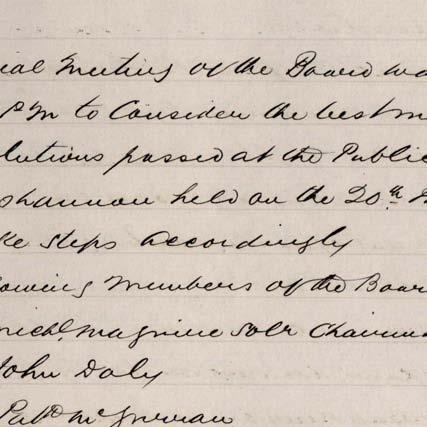 ial Meeting of the Board wa
P M to Consider the best m
lutions passed at the Public
shannon held on the 20th
ke steps accordingly
owing Members of the Boar
Michl. Maguire Solr Chairm
John Daly
Patk